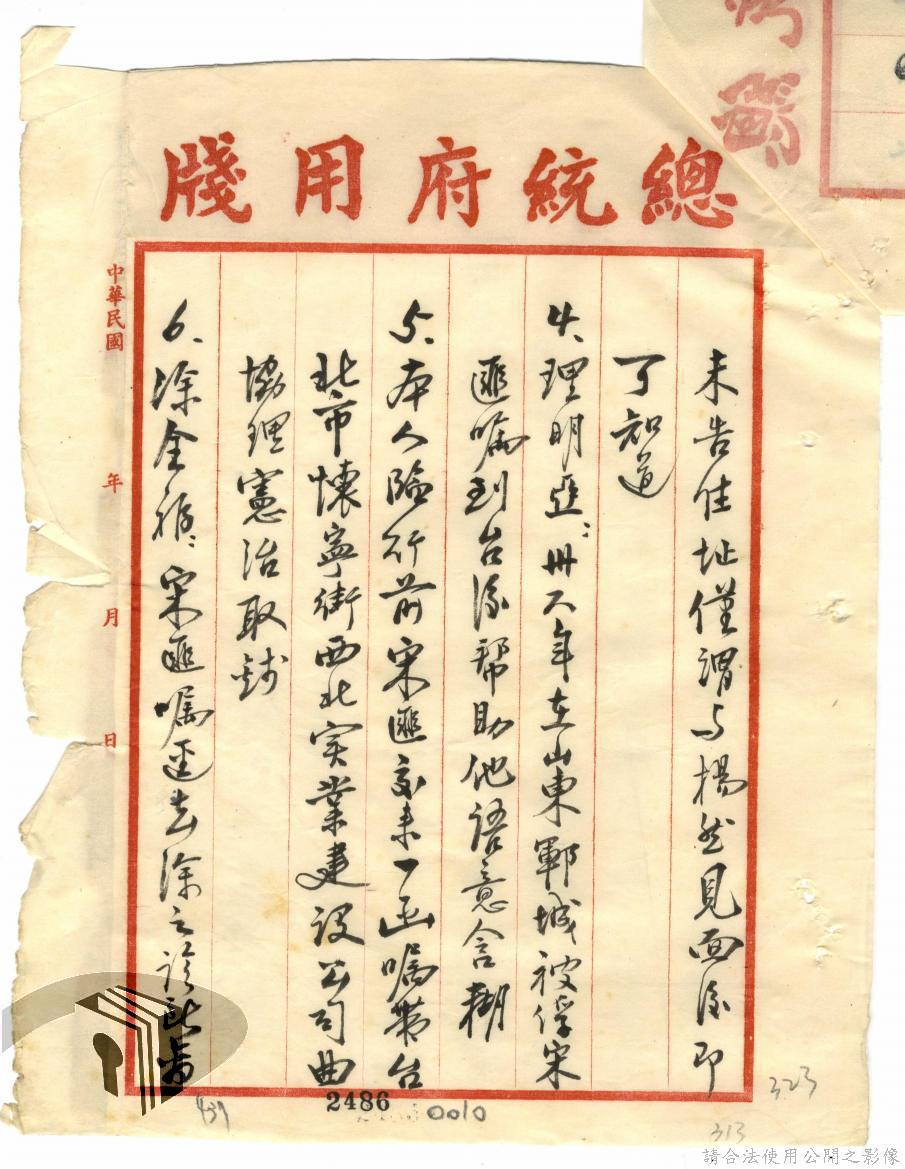 總統府用牋
未告住址僅謂与楊然見面後即
了知道
4、理明亞:卅六年在山東鄆城被俘宋
匪囑到台後幫助他語意含糊
5、本人臨行前宋匪交來一函囑帶台
北市懷寧街西北实業建設公司曲
協理憲治取錢
6、涂全福:宋匪囑逕去涂之診所
中華民國 年 月 日
2486
0010
437
323
313
請合法使用公開之影像